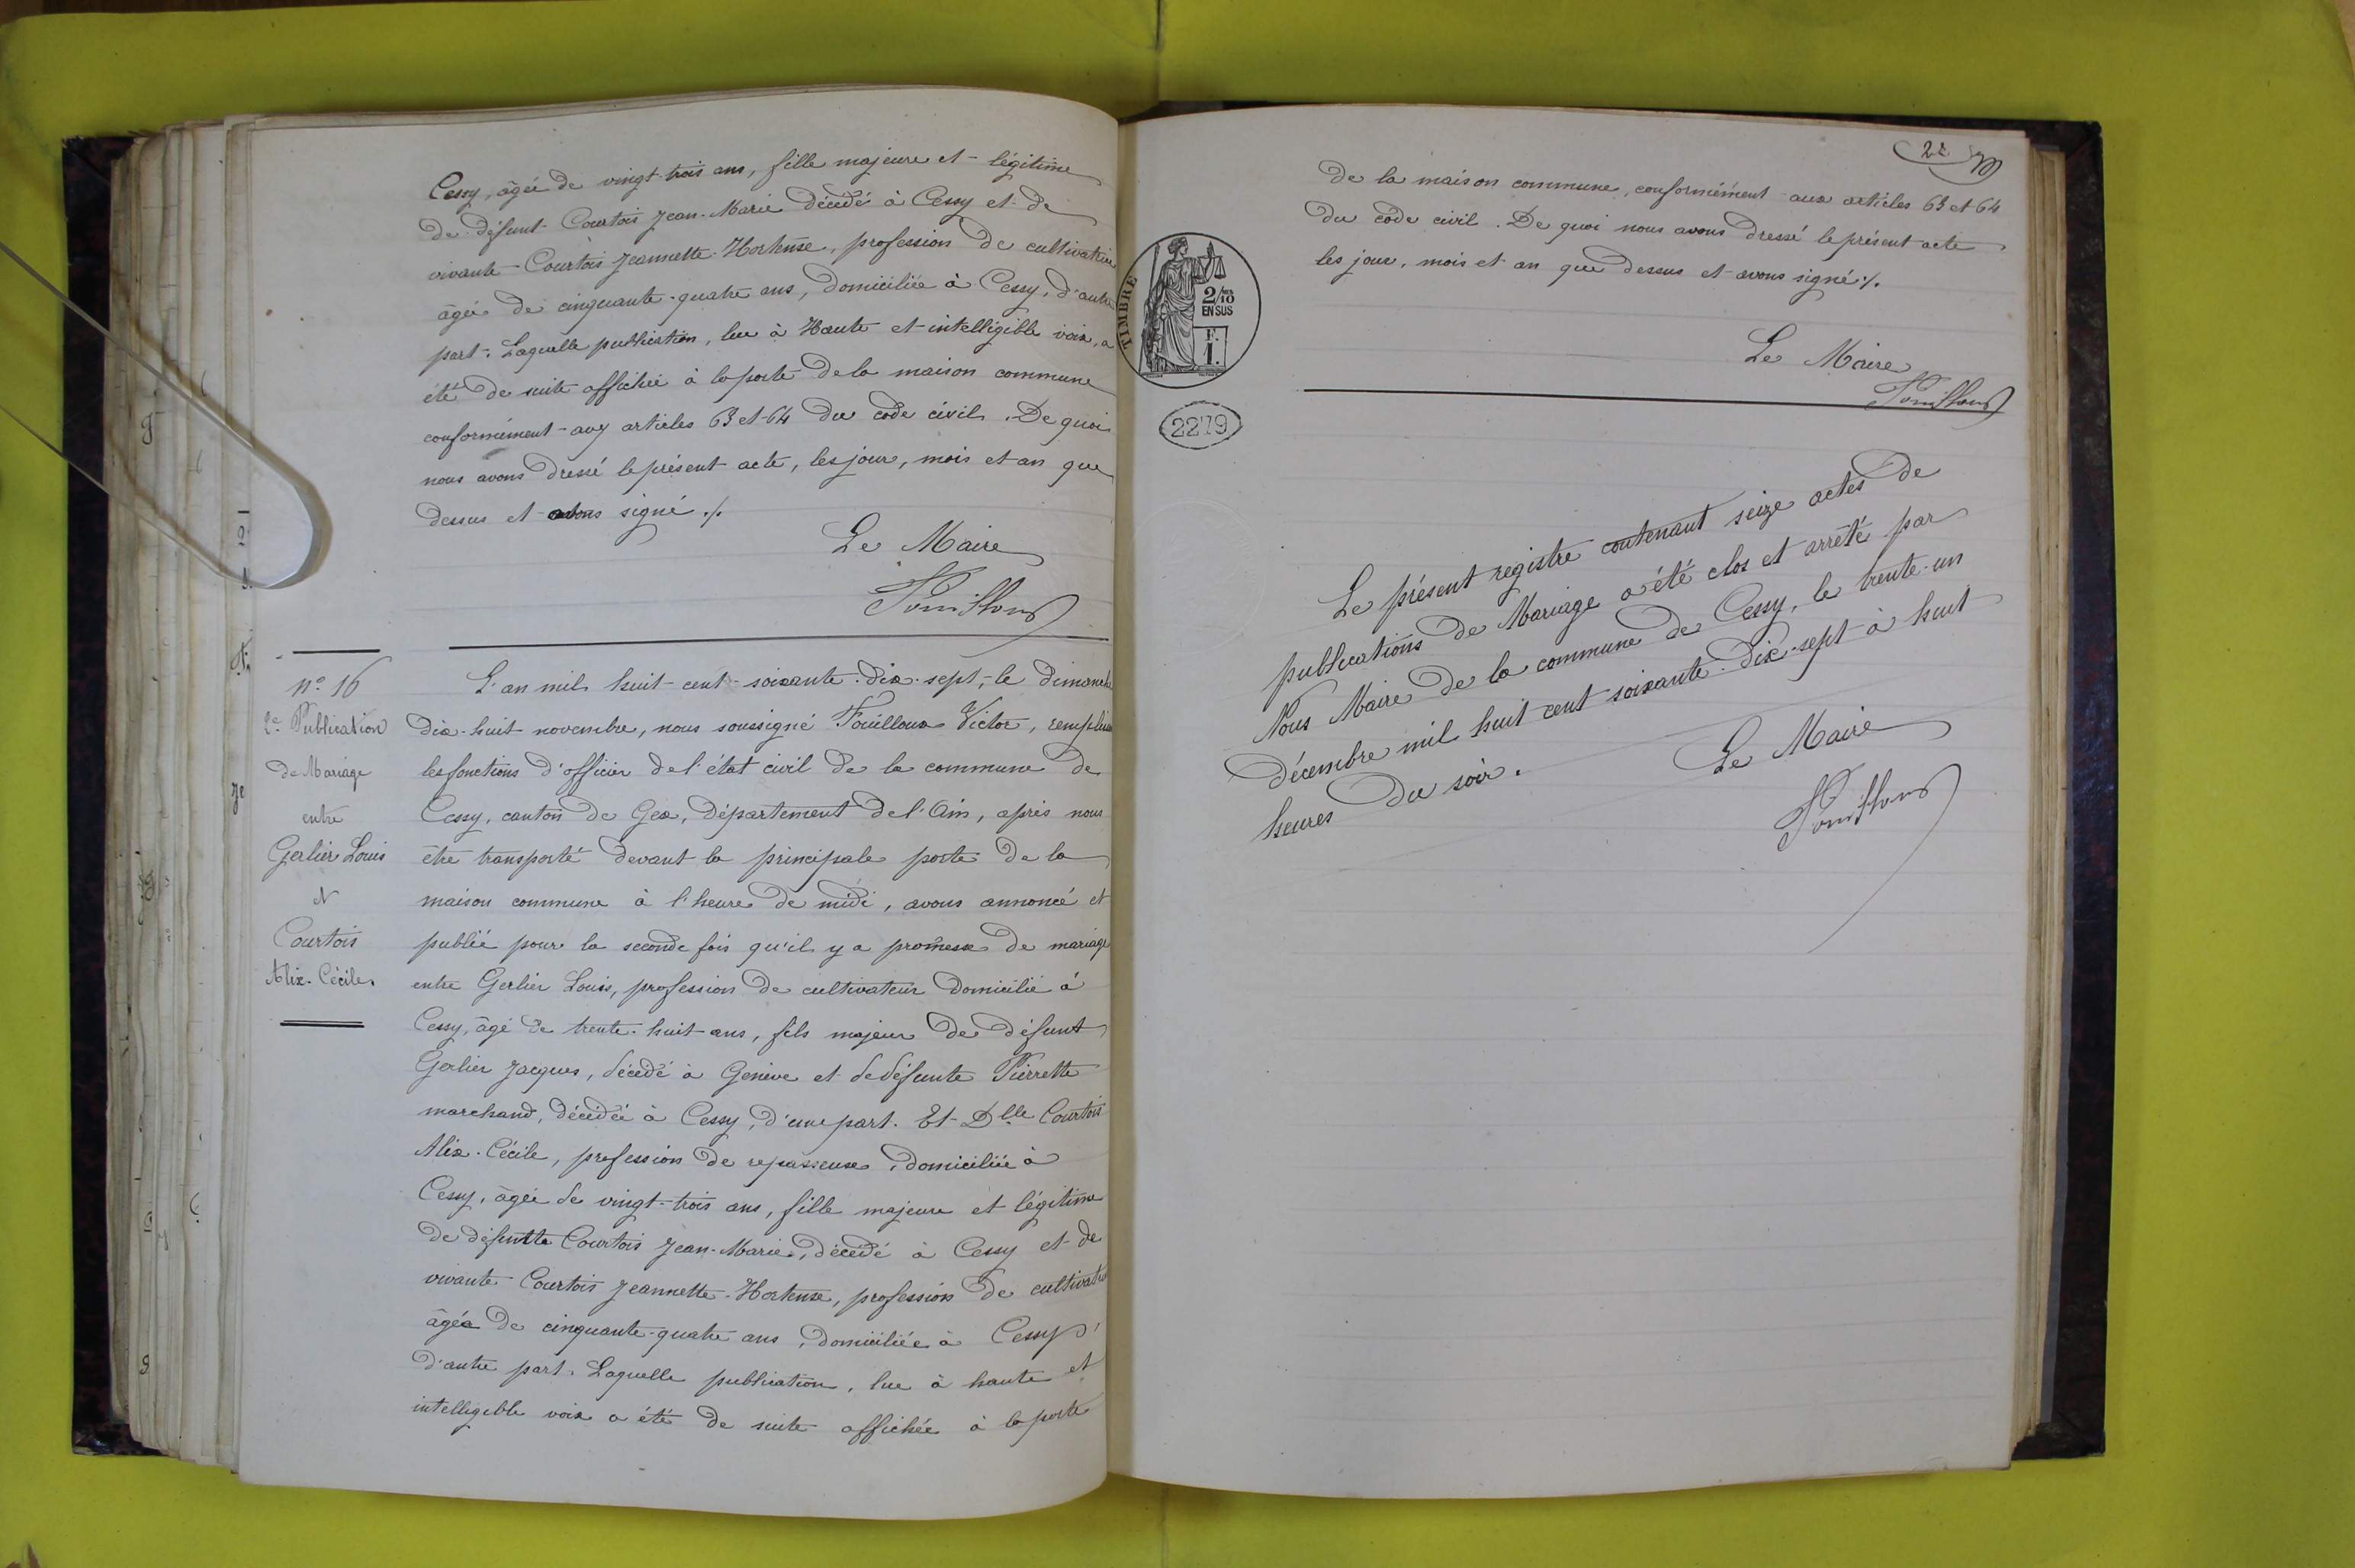 Cessy, âgée de vingt-trois ans, fille majeure et légitime
de défunt Courtois Jean-Marie décédé à Cessy et de
vivante Courtois Jeannette-Hortense, profession de cultivatrice
âgée de cinquante-quatre ans, domiciliée à Cessy, d'autre
part. Laquelle publication, lue à Haute et intelligible voix, a
été de suite affichée à la porte de la maison commune
conformément aux articles 63 et 64 du code civil. De quoi
nous avons dressé le présent acte, les jour, mois et an que
dessus et avons signé ./.
Le Maire
Fouilloux
n° 16
2e Publication
de Mariage
entre
Gerlier Louis
et
Courtois
Alix-Cécile.
L'an mil huit-cent-soixante-dix-sept, le Dimanche
dix-huit novembre, nous soussigné Fouilloux Victor, remplissant
les fonctions d'officier de l'état civil de la commune de
Cessy, canton de Gex, département de l'Ain, après nous
être transporté devant la principale porte de la
maison commune à l'heure de midi, avons annoncé et
publié pour la seconde fois qu'il y a promesse de mariage
entre Gerlier Louis, profession de cultivateur domicilié à
Cessy, âgé de trente-huit ans, fils majeur de défunt
Gerlier Jacques, décédé à Genève et de défunte Pierrette
marchand, décédée à Cessy, d'une part. Et Dlle Courtois
Alix-Cécile, profession de repasseuse, domiciliée à
Cessy, âgée de vingt-trois ans, fille majeure et légitime
de défunt Courtois Jean-Marie, décédé à Cessy et de
vivante Courtois Jeannette-Hortense, profession de cultivatrice
âgée de cinquante-quatre ans, domiciliée à Cessy
d'autre part. Laquelle publication, lue à haute et
intelligible voix a été de suite affichée à la porte
de la maison commune, conformément aux articles 63 et 64
du code civil. De quoi nous avons dressé le présent acte
les jour, mois et an que dessus et avons signé ./.
Le Maire
Fouilloux
TIMBRE
2/10
EN SUS
F.
1.
2279
Le présent registre contenant seize actes de
publications de Mariage a été clos et arrêté par
Nous Maire de la commune de Cessy, le trente-un
décembre mil huit cent soixante-dix-sept à huit
heures du soir.
Le Maire
Fouilloux